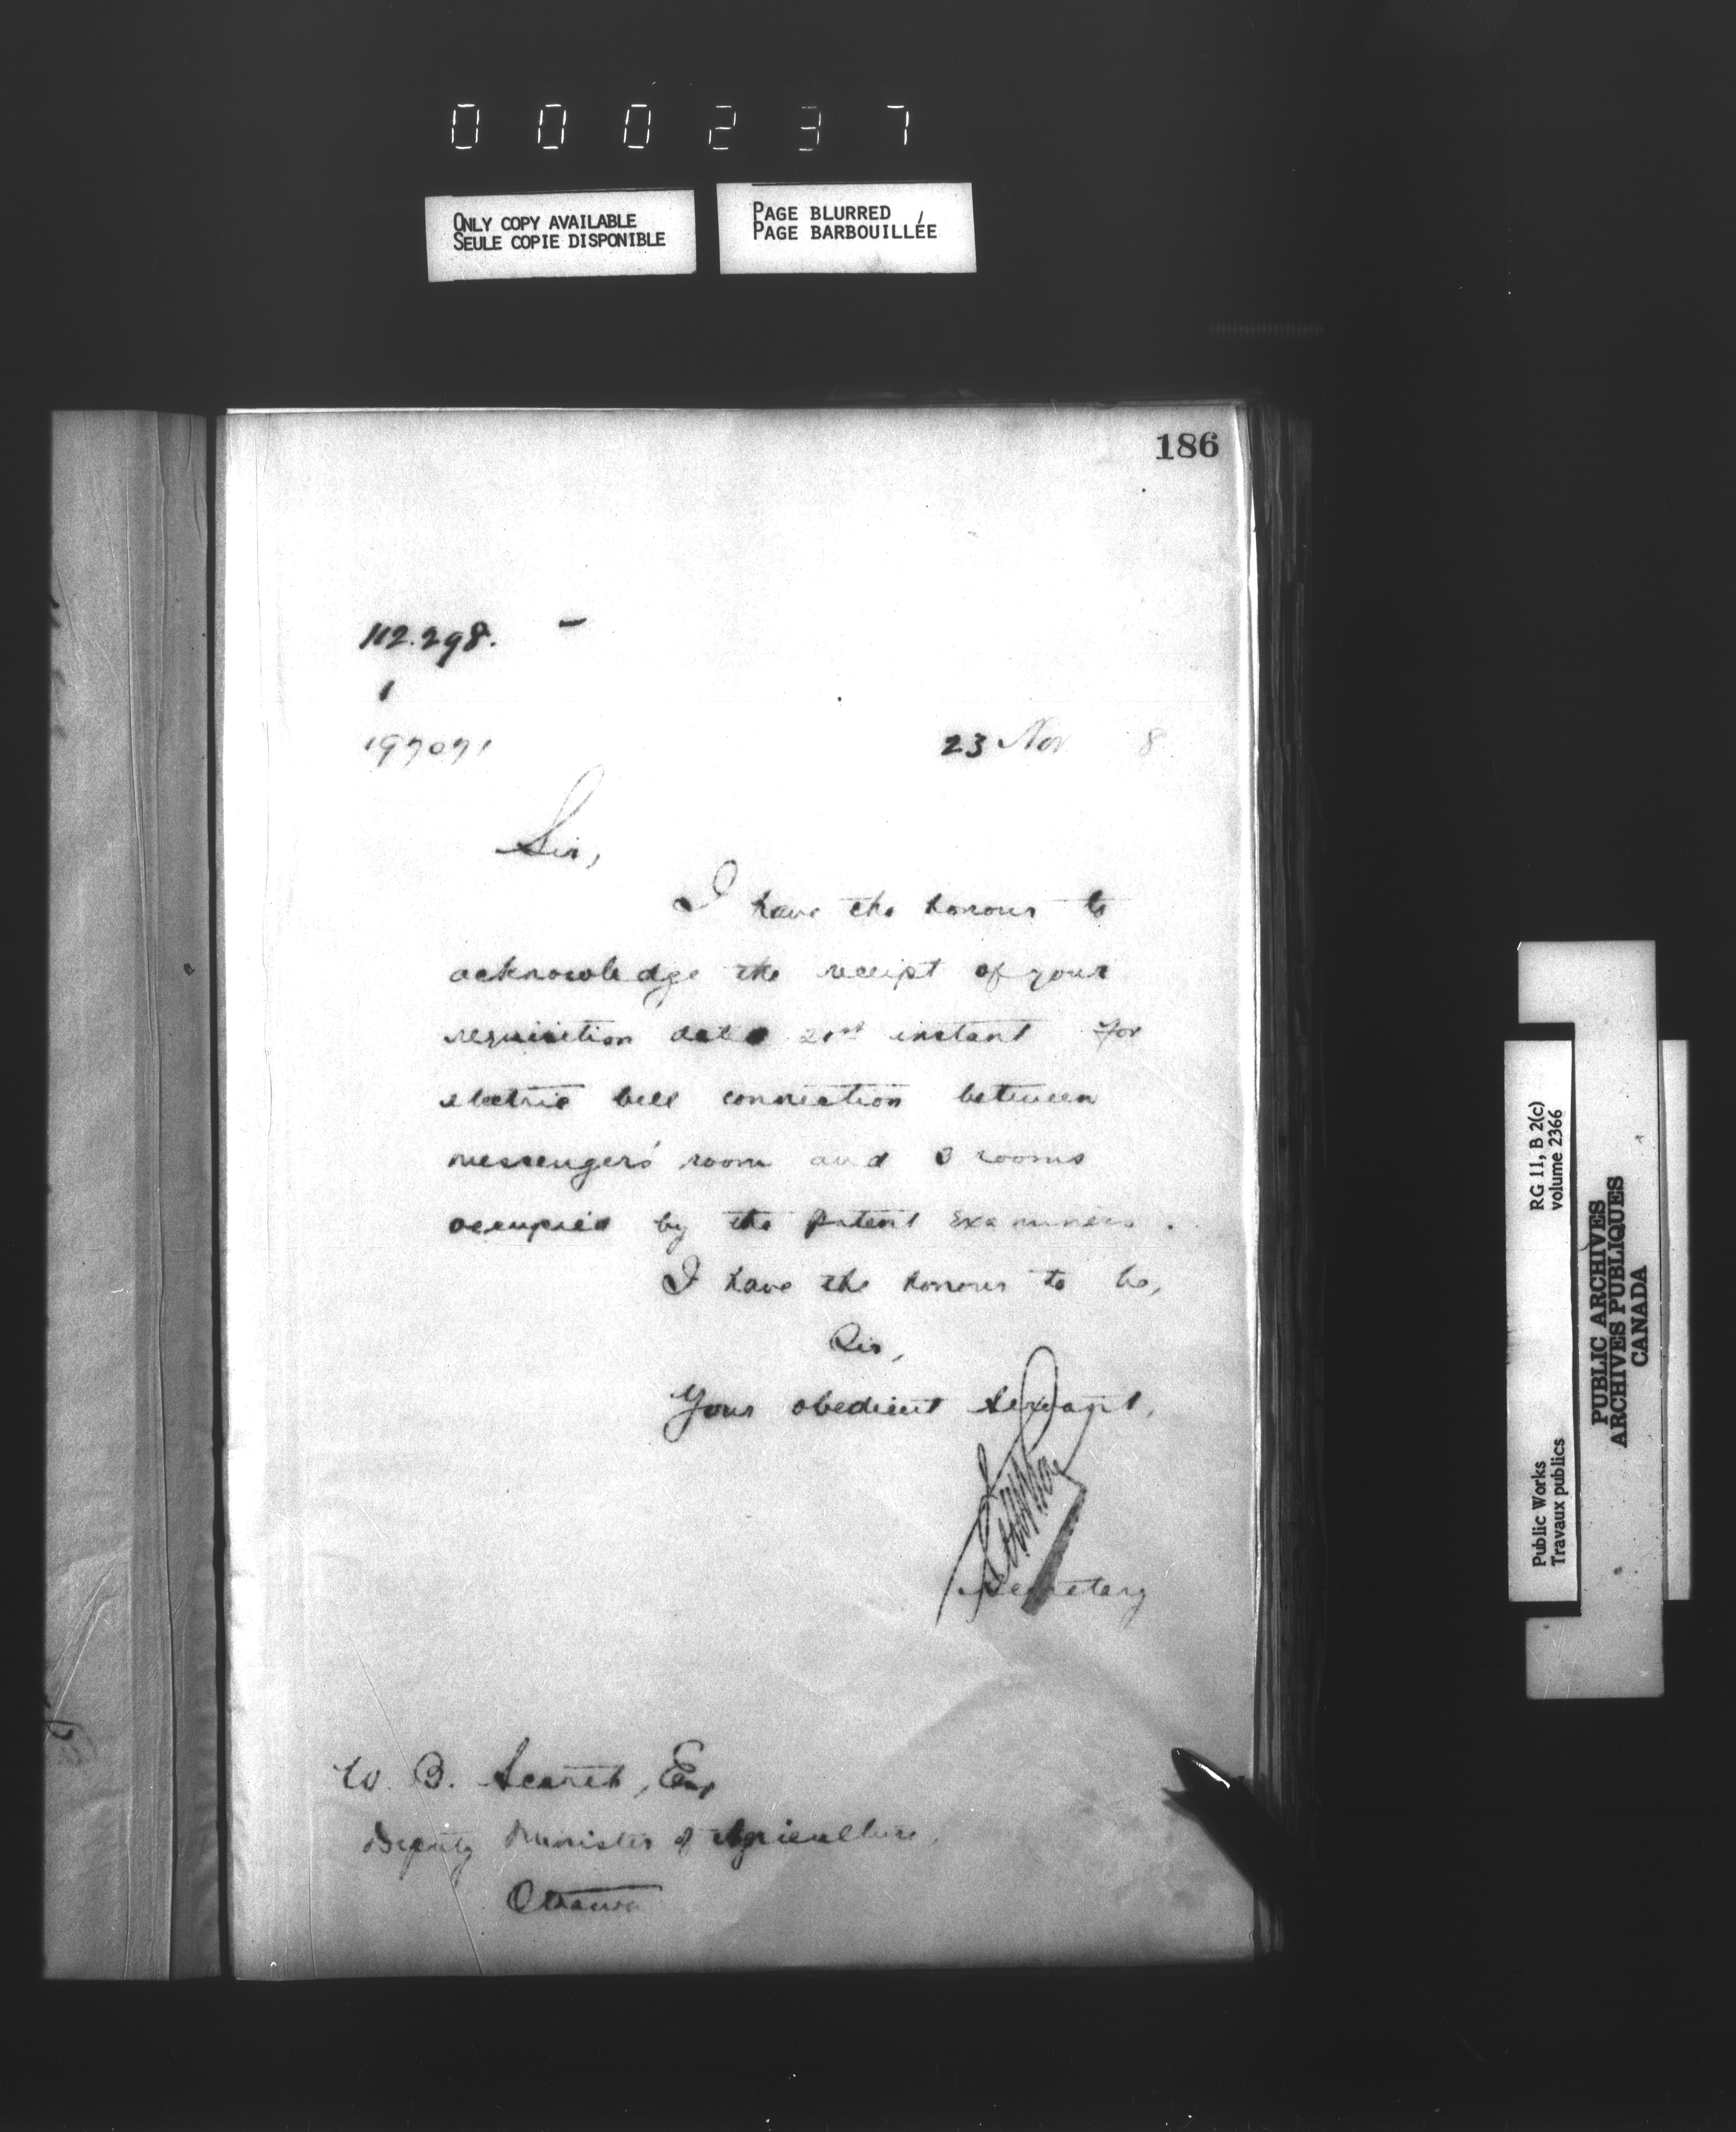 000237
ONLY COPY AVAILABLE
SEULE COPIE DISPONIBLE
PAGE BLURRED
PAGE BARBOUILLÉE
186
112.298.
1
197071
23 Nov 8
Sir,
I have the honour to
acknowledge the receipt of your
requisition date 21st instant for
electric bell connection between
messengers' room and 3 rooms
occupied by the Patent Examiners.
I have the honour to be,
Sir,
Your obedient servant,
Secretary
W. B. Scarth, Esq
Deputy Minister of Agriculture,
Ottawa
RG 11, B 2(c)
volume 2366
Public Works
Travaux publics
PUBLIC ARCHIVES
ARCHIVES PUBLIQUES
CANADA